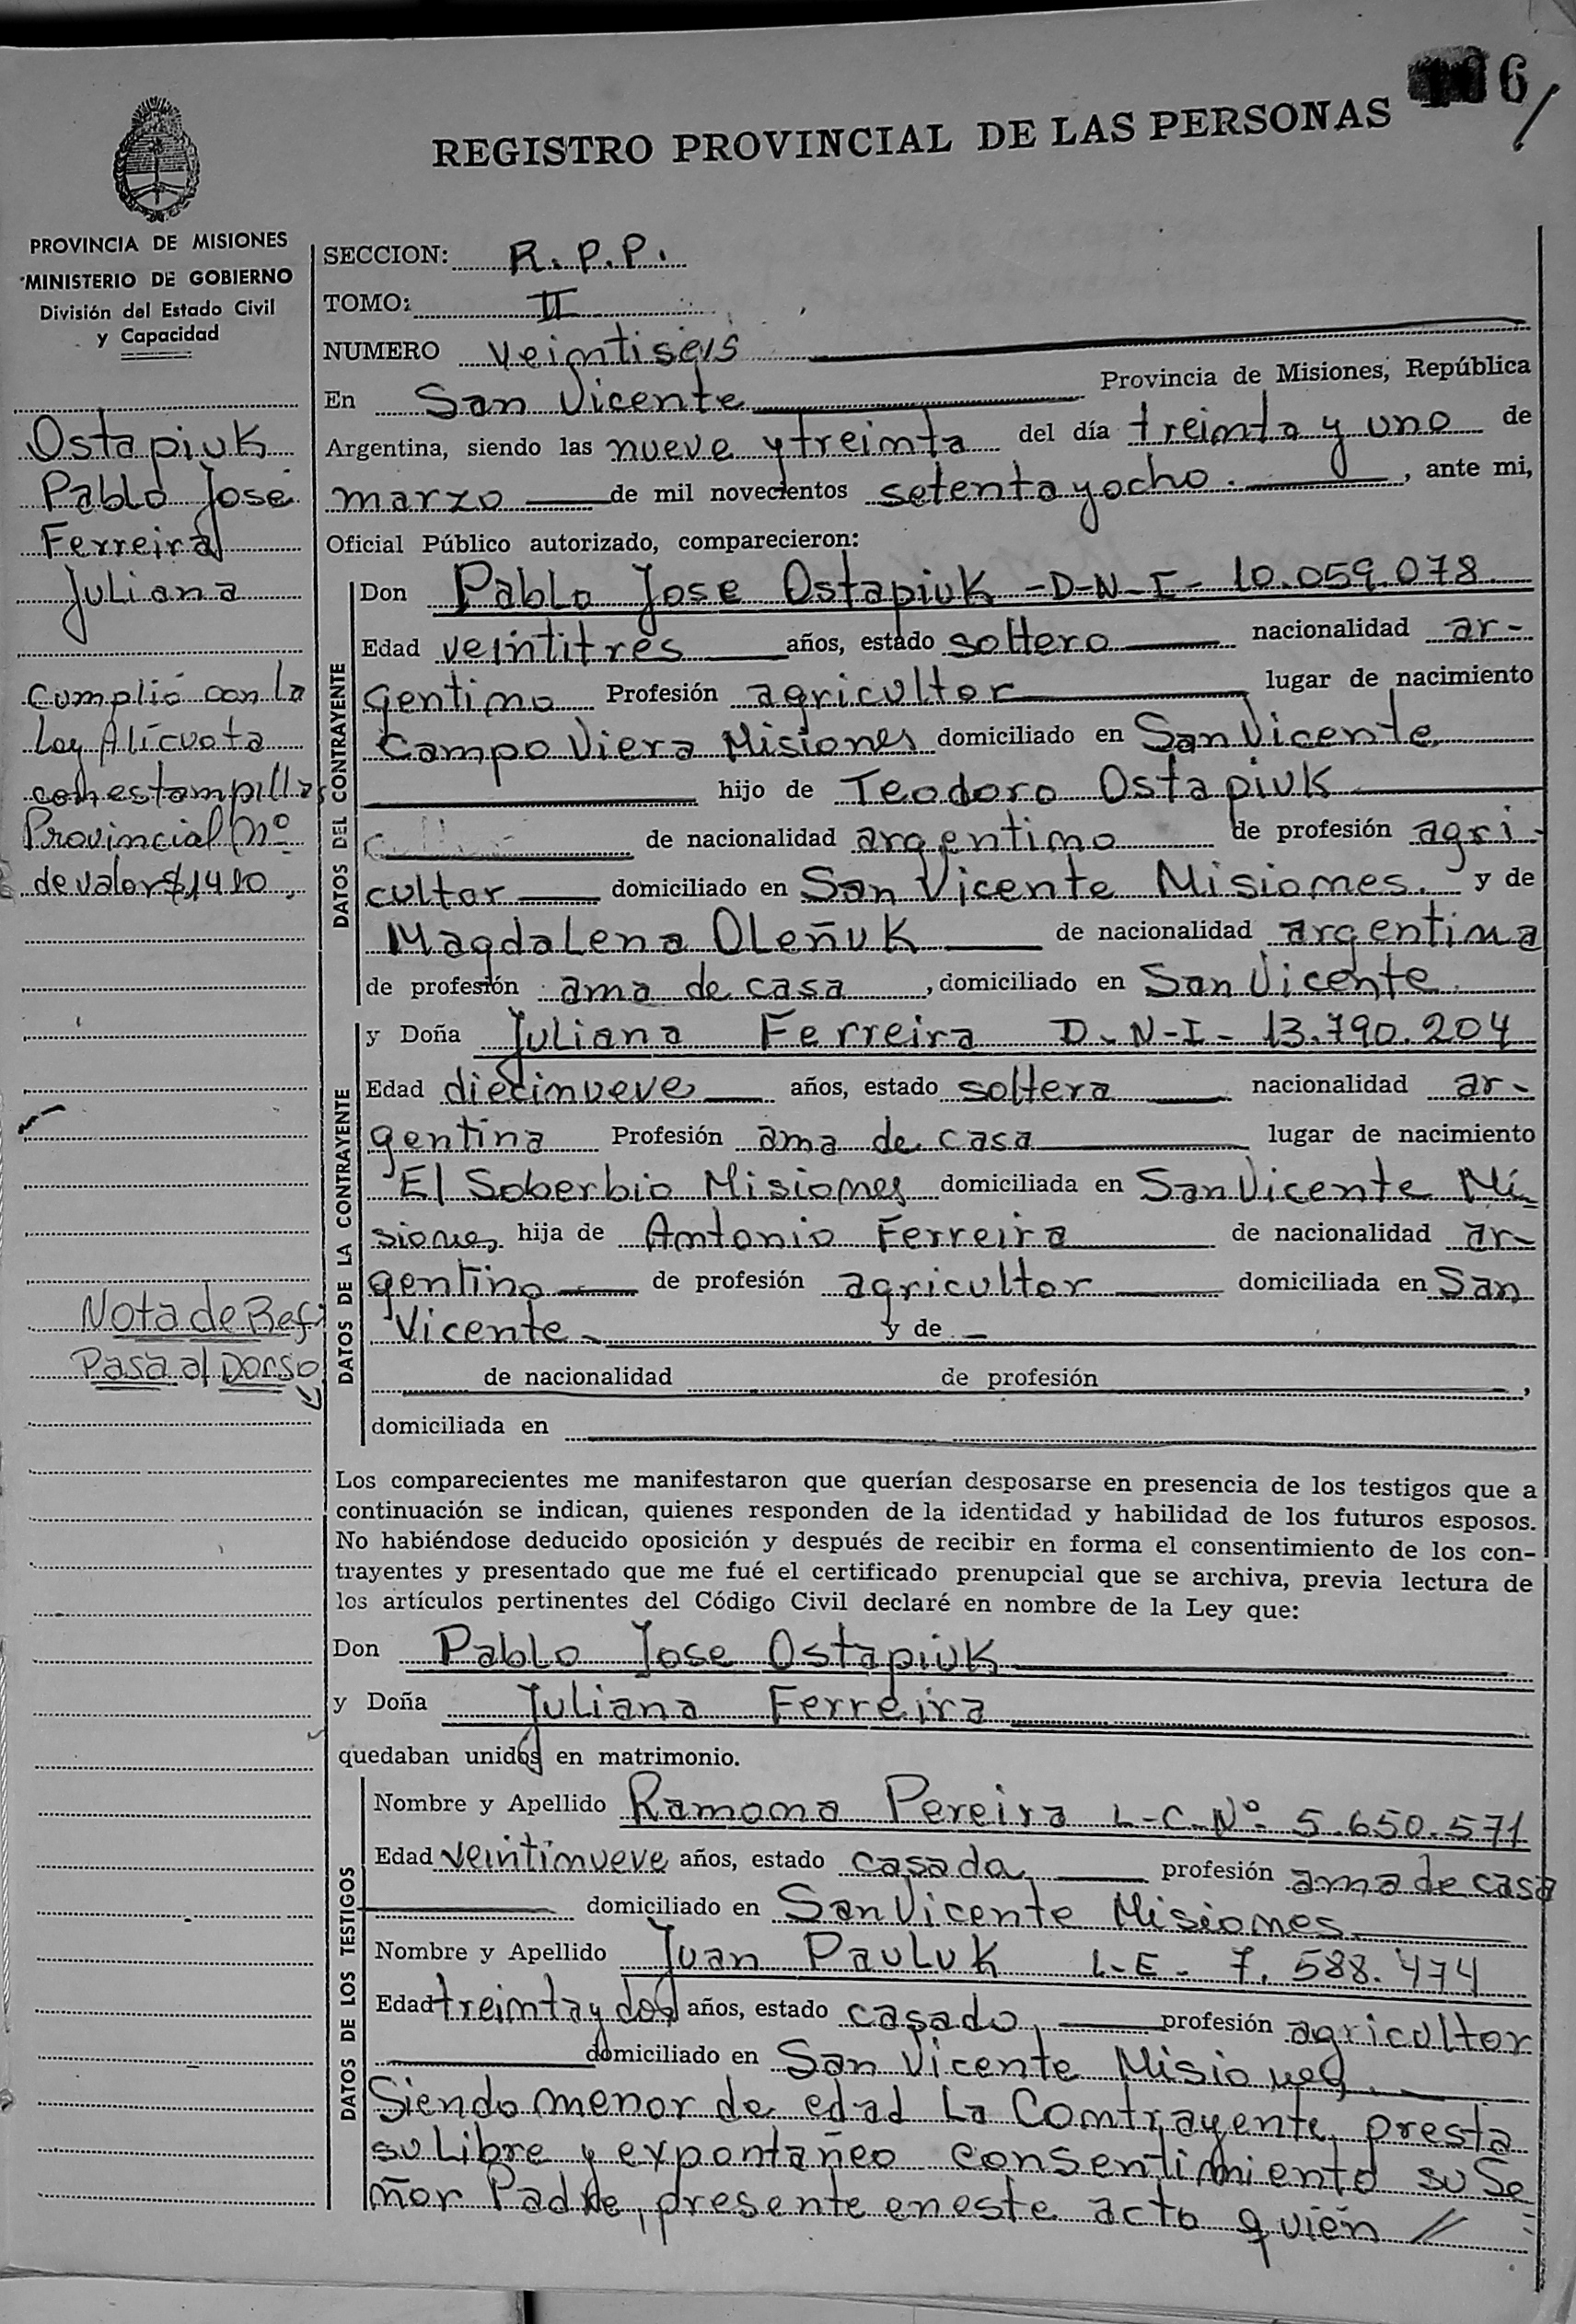 106/
REGISTRO PROVINCIAL DE LAS PERSONAS
PROVINCIA DE MISIONES
MINISTERIO DE GOBIERNO
División del Estado Civil
y Capacidad
Ostapiuk
Pablo José
Ferreira
Juliana
Cumplió con la
Ley Alícuota
con estampilla
Provincial Nº
de valor $1410
Nota de Ref.
Pasa al Dorso
SECCION: R.P.P.
TOMO: II
NUMERO veintiseis
En San Vicente Provincia de Misiones, República
Argentina, siendo las nueve y treinta del día treinta y uno de
marzo de mil novecientos setenta y ocho. , ante mi,
Oficial Público autorizado, comparecieron:
DATOS DEL CONTRAYENTE
Don Pablo Jose Ostapiuk - D-N-I- 10.059.078
Edad veintitres años, estado soltero nacionalidad ar-
gentino Profesión agricultor lugar de nacimiento
Campo Viera Misiones domiciliado en San Vicente
hijo de Teodoro Ostapiuk
de nacionalidad argentino de profesión agri-
cultor domiciliado en San Vicente Misiones. y de
Magdalena Oleñuk de nacionalidad argentina
de profesión ama de casa , domiciliado en San Vicente
DATOS DE LA CONTRAYENTE
y Doña Juliana Ferreira D-N-I- 13.790.204
Edad diecinueve años, estado soltera nacionalidad ar-
gentina Profesión ama de casa lugar de nacimiento
El Soberbio Misiones domiciliada en San Vicente Mi-
siones hija de Antonio Ferreira de nacionalidad ar-
gentino de profesión agricultor domiciliada en San
Vicente- y de -
de nacionalidad de profesión ,
domiciliada en
Los comparecientes me manifestaron que querían desposarse en presencia de los testigos que a
continuación se indican, quienes responden de la identidad y habilidad de los futuros esposos.
No habiéndose deducido oposición y después de recibir en forma el consentimiento de los con-
trayentes y presentado que me fué el certificado prenupcial que se archiva, previa lectura de
los artículos pertinentes del Código Civil declaré en nombre de la Ley que:
Don Pablo Jose Ostapiuk
y Doña Juliana Ferreira
quedaban unidos en matrimonio.
DATOS DE LOS TESTIGOS
Nombre y Apellido Ramona Pereira L-C-Nº- 5.650.571
Edad veintinueve años, estado casada profesión ama de casa
domiciliado en San Vicente Misiones
Nombre y Apellido Juan Pauluk L-E- 7.588.474
Edad treinta y dos años, estado casado profesión agricultor
domiciliado en San Vicente Misiones
Siendo menor de edad La Contrayente, presta
su Libre y expontañeo consentimiento su Se
ñor Padre, presente en este acto quién //